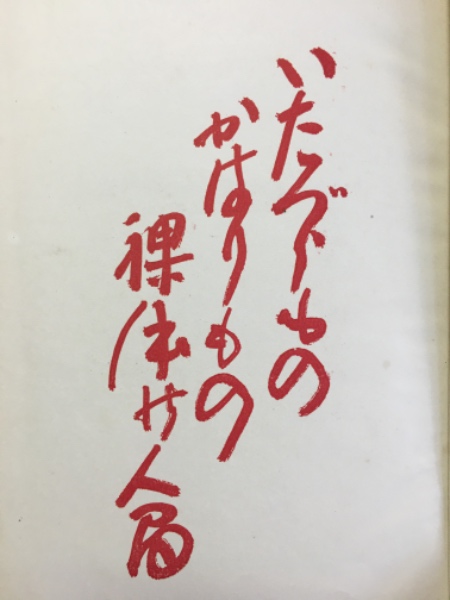 いたづらもの
かはりもの
裸体の人間